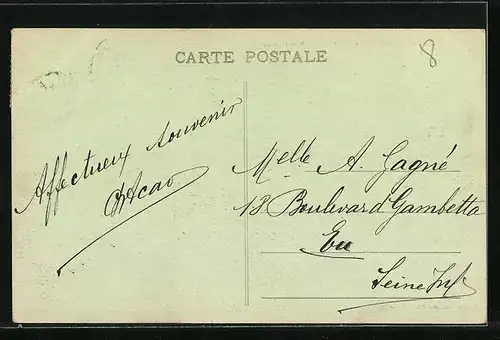 CARTE POSTALE
8
Affectueux souvenir
Melle A. Gagné
18 Boulevard Gambetta
Eu
Seine Infre